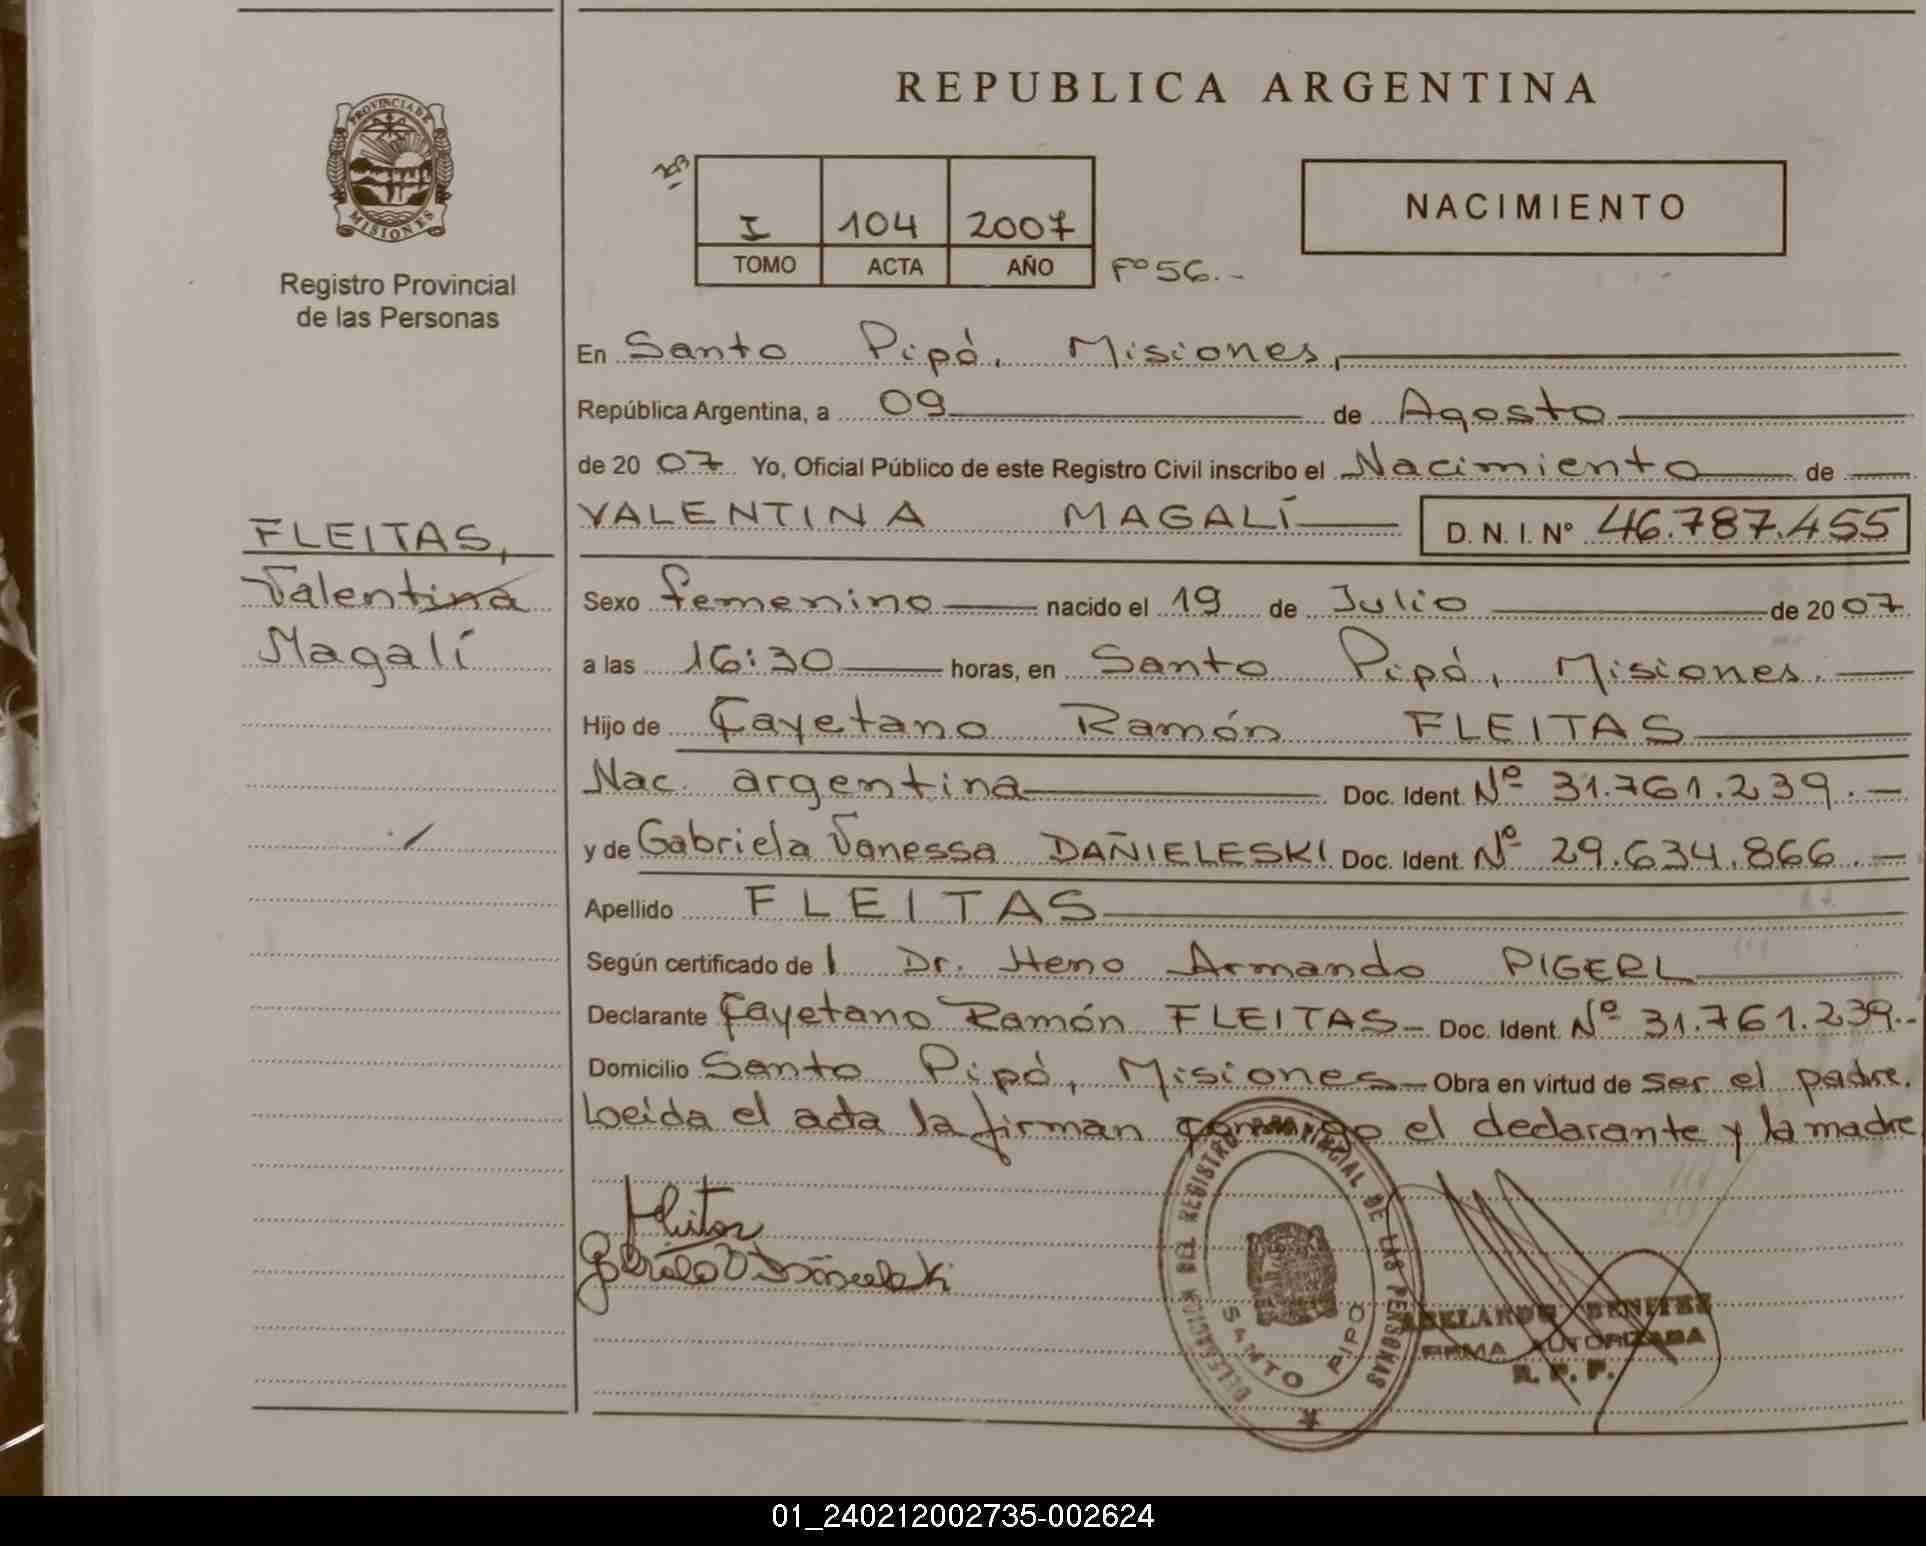 REPUBLICA ARGENTINA
PROVINCIA DE MISIONES
Registro Provincial
de las Personas
203
I 104 2007
TOMO ACTA AÑO
Fº 56.-
NACIMIENTO
En Santo Pipó, Misiones,
República Argentina, a 09 de Agosto
de 20 07 Yo, Oficial Público de este Registro Civil inscribo el Nacimiento de
VALENTINA MAGALÍ D. N. I. Nº 46.787.455
FLEITAS,
Valentina
Magalí
Sexo femenino nacido el 19 de Julio de 20 07
a las 16:30 horas, en Santo Pipó, Misiones.
Hijo de Cayetano Ramón FLEITAS
Nac. argentina Doc. Ident. Nº 31.761.239.-
y de Gabriela Vanessa DAÑIELESKI Doc. Ident. Nº 29.634.866.-
Apellido FLEITAS
Según certificado de l Dr. Heno Armando PIGERL
Declarante Cayetano Ramón FLEITAS- Doc. Ident. Nº 31.761.239.-
Domicilio Santo Pipó, Misiones- Obra en virtud de ser el padre.
Leída el acta la firman conmigo el declarante y la madre
Fleitas
DELEGACION DEL REGISTRO PROVINCIAL DE LAS PERSONAS
SANTO PIPO
ABELARDO BENITEZ
FIRMA AUTORIZADA
R. P. P.
01_240212002735-002624